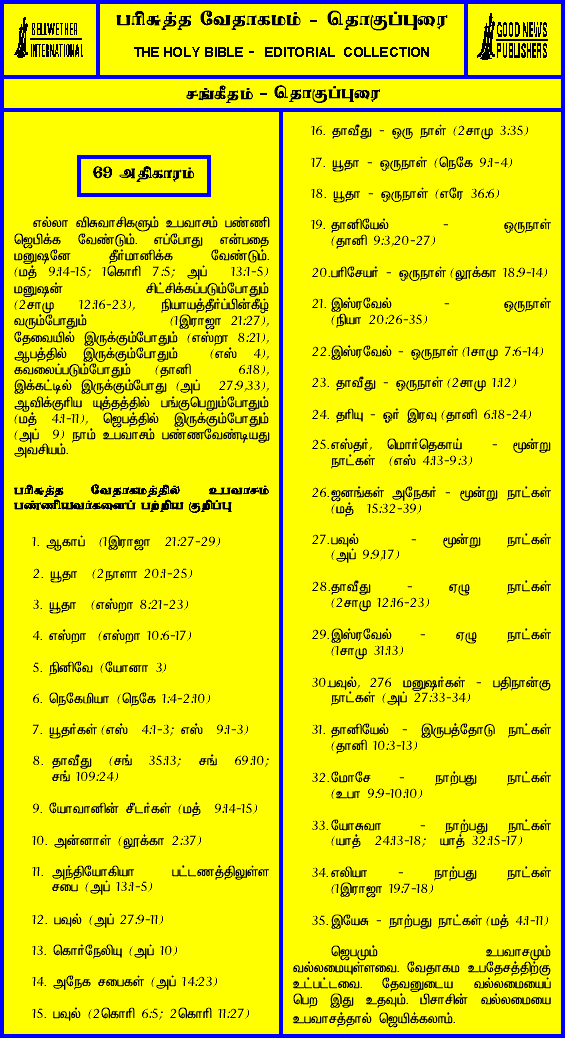 BELLWETHER
INTERNATIONAL
பரிசுத்த வேதாகமம் - தொகுப்புரை
THE HOLY BIBLE - EDITORIAL COLLECTION
GOOD NEWS
PUBLISHERS
சங்கீதம் - தொகுப்புரை
69 அதிகாரம்
எல்லா விசுவாசிகளும் உபவாசம் பண்ணி
ஜெபிக்க வேண்டும். எப்போது என்பதை
மனுஷனே தீர்மானிக்க வேண்டும்.
(மத் 9:14-15; 1கொரி 7:5; அப் 13:1-5)
மனுஷன் சிட்சிக்கப்படும்போதும்
(2சாமு 12:16-23), நியாயத்தீர்ப்பின்கீழ்
வரும்போதும் (1இராஜா 21:27),
தேவையில் இருக்கும்போதும் (எஸ்றா 8:21),
ஆபத்தில் இருக்கும்போதும் (எஸ் 4),
கவலைப்படும்போதும் (தானி 6:18),
இக்கட்டில் இருக்கும்போது (அப் 27:9,33),
ஆவிக்குரிய யுத்தத்தில் பங்குபெறும்போதும்
(மத் 4:1-11), ஜெபத்தில் இருக்கும்போதும்
(அப் 9) நாம் உபவாசம் பண்ணவேண்டியது
அவசியம்.
பரிசுத்த வேதாகமத்தில் உபவாசம்
பண்ணியவர்களைப் பற்றிய குறிப்பு
1. ஆகாப் (1இராஜா 21:27-29)
2. யூதா (2நாளா 20:1-25)
3. யூதா (எஸ்றா 8:21-23)
4. எஸ்றா (எஸ்றா 10:6-17)
5. நினிவே (யோனா 3)
6. நெகேமியா (நெகே 1:4-2:10)
7. யூதர்கள் (எஸ் 4:1-3; எஸ் 9:1-3)
8. தாவீது (சங் 35:13; சங் 69:10;
சங் 109:24)
9. யோவானின் சீடர்கள் (மத் 9:14-15)
10. அன்னாள் (லூக்கா 2:37)
11. அந்தியோகியா பட்டணத்திலுள்ள
சபை (அப் 13:1-5)
12. பவுல் (அப் 27:9-11)
13. கொர்நேலியு (அப் 10)
14. அநேக சபைகள் (அப் 14:23)
15. பவுல் (2கொரி 6:5; 2கொரி 11:27)
16. தாவீது - ஒரு நாள் (2சாமு 3:35)
17. யூதா - ஒருநாள் (நெகே 9:1-4)
18. யூதா - ஒருநாள் (எரே 36:6)
19. தானியேல் - ஒருநாள்
(தானி 9:3,20-27)
20.பரிசேயர் - ஒருநாள் (லூக்கா 18:9-14)
21. இஸ்ரவேல் - ஒருநாள்
(நியா 20:26-35)
22.இஸ்ரவேல் - ஒருநாள் (1சாமு 7:6-14)
23. தாவீது - ஒருநாள் (2சாமு 1:12)
24. தரியு - ஓர் இரவு (தானி 6:18-24)
25.எஸ்தர், மொர்தெகாய் - மூன்று
நாட்கள் (எஸ் 4:13-9:3)
26.ஜனங்கள் அநேகர் - மூன்று நாட்கள்
(மத் 15:32-39)
27.பவுல் - மூன்று நாட்கள்
(அப் 9:9,17)
28.தாவீது - ஏழு நாட்கள்
(2சாமு 12:16-23)
29.இஸ்ரவேல் - ஏழு நாட்கள்
(1சாமு 31:13)
30.பவுல், 276 மனுஷர்கள் - பதிநான்கு
நாட்கள் (அப் 27:33-34)
31. தானியேல் - இருபத்தோடு நாட்கள்
(தானி 10:3-13)
32.மோசே - நாற்பது நாட்கள்
(உபா 9:9-10:10)
33.யோசுவா - நாற்பது நாட்கள்
(யாத் 24:13-18; யாத் 32:15-17)
34.எலியா - நாற்பது நாட்கள்
(1இராஜா 19:7-18)
35.இயேசு - நாற்பது நாட்கள் (மத் 4:1-11)
ஜெபமும் உபவாசமும்
வல்லமையுள்ளவை. வேதாகம உபதேசத்திற்கு
உட்பட்டவை. தேவனுடைய வல்லமையைப்
பெற இது உதவும். பிசாசின் வல்லமையை
உபவாசத்தால் ஜெயிக்கலாம்.